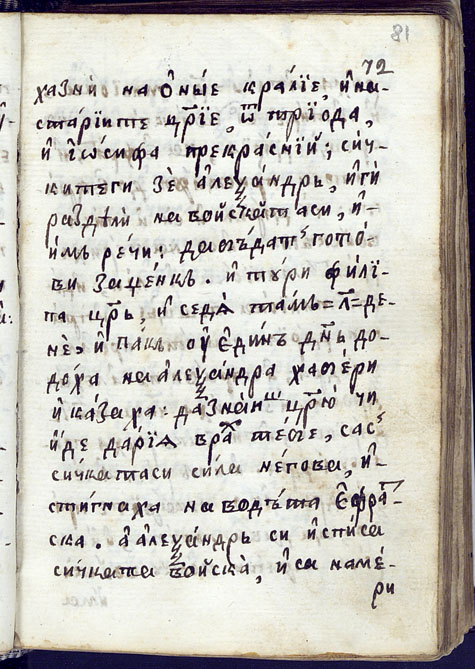 81
72
хазни на ѻ҆ны́е кра́лїе, и҆ на
ста́рїите цр҃їе, ѿ трїода,
и҆ і҆ѡ́сифа прекра́снїй; си́ч-
ките ги зѐ а҆леѯа́ндрь, и҆ ги
раздели на во́йскатаси, и҆-
и҆мъ ре́чи: да бъ́дат гото́-
ви за ме́нкъ. и҆ тури фили́-
па цр҃ь, и҆ седѧ̀ та́мъ =л҃= де-
не̏ и҆ па́къ оу҆ є҆ди́нъ дн҃ь до-
до́ха на а҆леѯа́ндра хабе́ри
и҆ ка́заха: да зна́иш цр҃ю̀ чи
и҆́де да́рїѧ вра́х те́бе, сас
си́чкатаси си́ла не́гова, и҆-
сти́гнаха на водъ́та є҆фра́т-
ска. а҆ а҆леѯа́ндрь си и҆спи́са
си́чката во́йска̀, и҆ са наме́-
ри